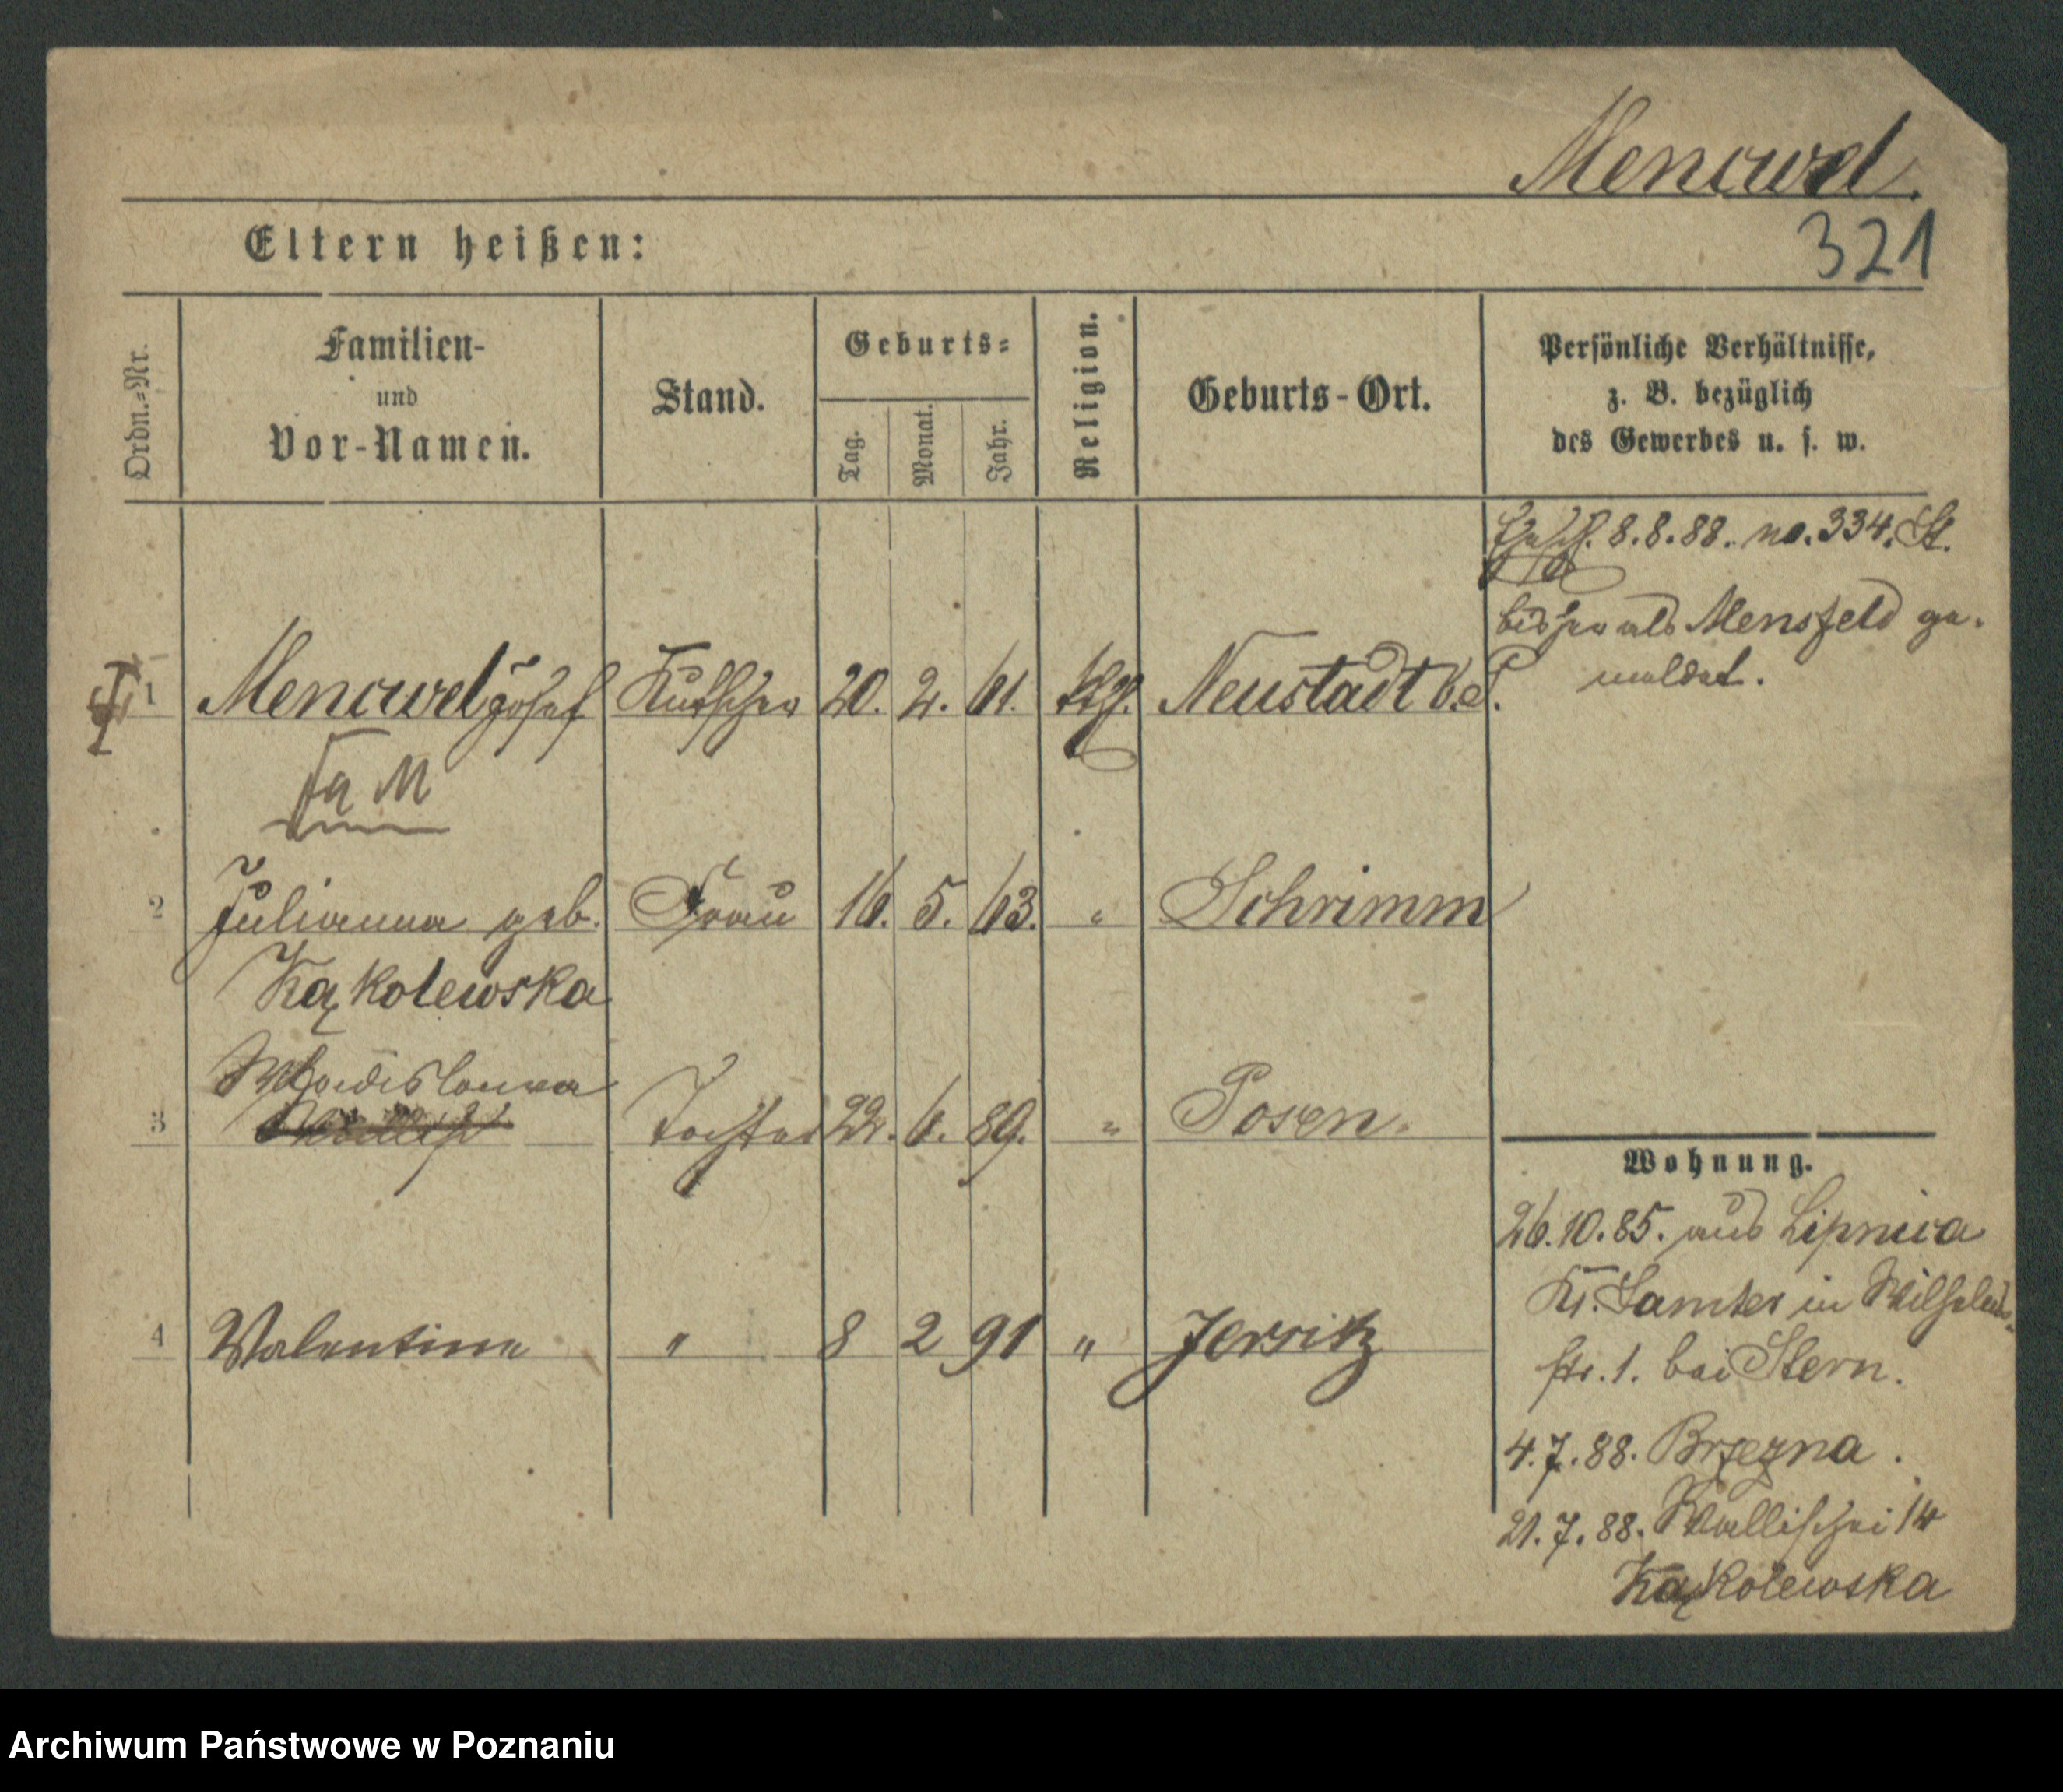 Mencwel.
321
Eltern heißen:
Ordn.=Nr.
Familien-
und
Vor-Namen.
Stand.
Geburts=
Tag.
Monat.
Jahr.
Religion.
Geburts-Ort.
Persönliche Verhältnisse,
z. B. bezüglich
des Gewerbes u. s. w.
8.8.88. no. 334. St.
bisher als Mensfeld ge-
meldet.
1 Mencwel Josef Kutscher 20. 2. 61. kth. Neustadt b. P.
Fa M
2 Julianna geb. Frau 16. 5. 63. " Schrimm
Kąkolewska
Wladislawa
3 Tochter 22. 6. 89. " Posen.
4 Valentine " 8 2 91 " Jersitz
Wohnung.
26.10.85. aus Lipnica
Kr. Samter in Wilhelms-
str. 1. bei Stern.
4.7.88. Brzezna.
21.7.88. Wallischei 14
Kąkolewska
Archiwum Państwowe w Poznaniu